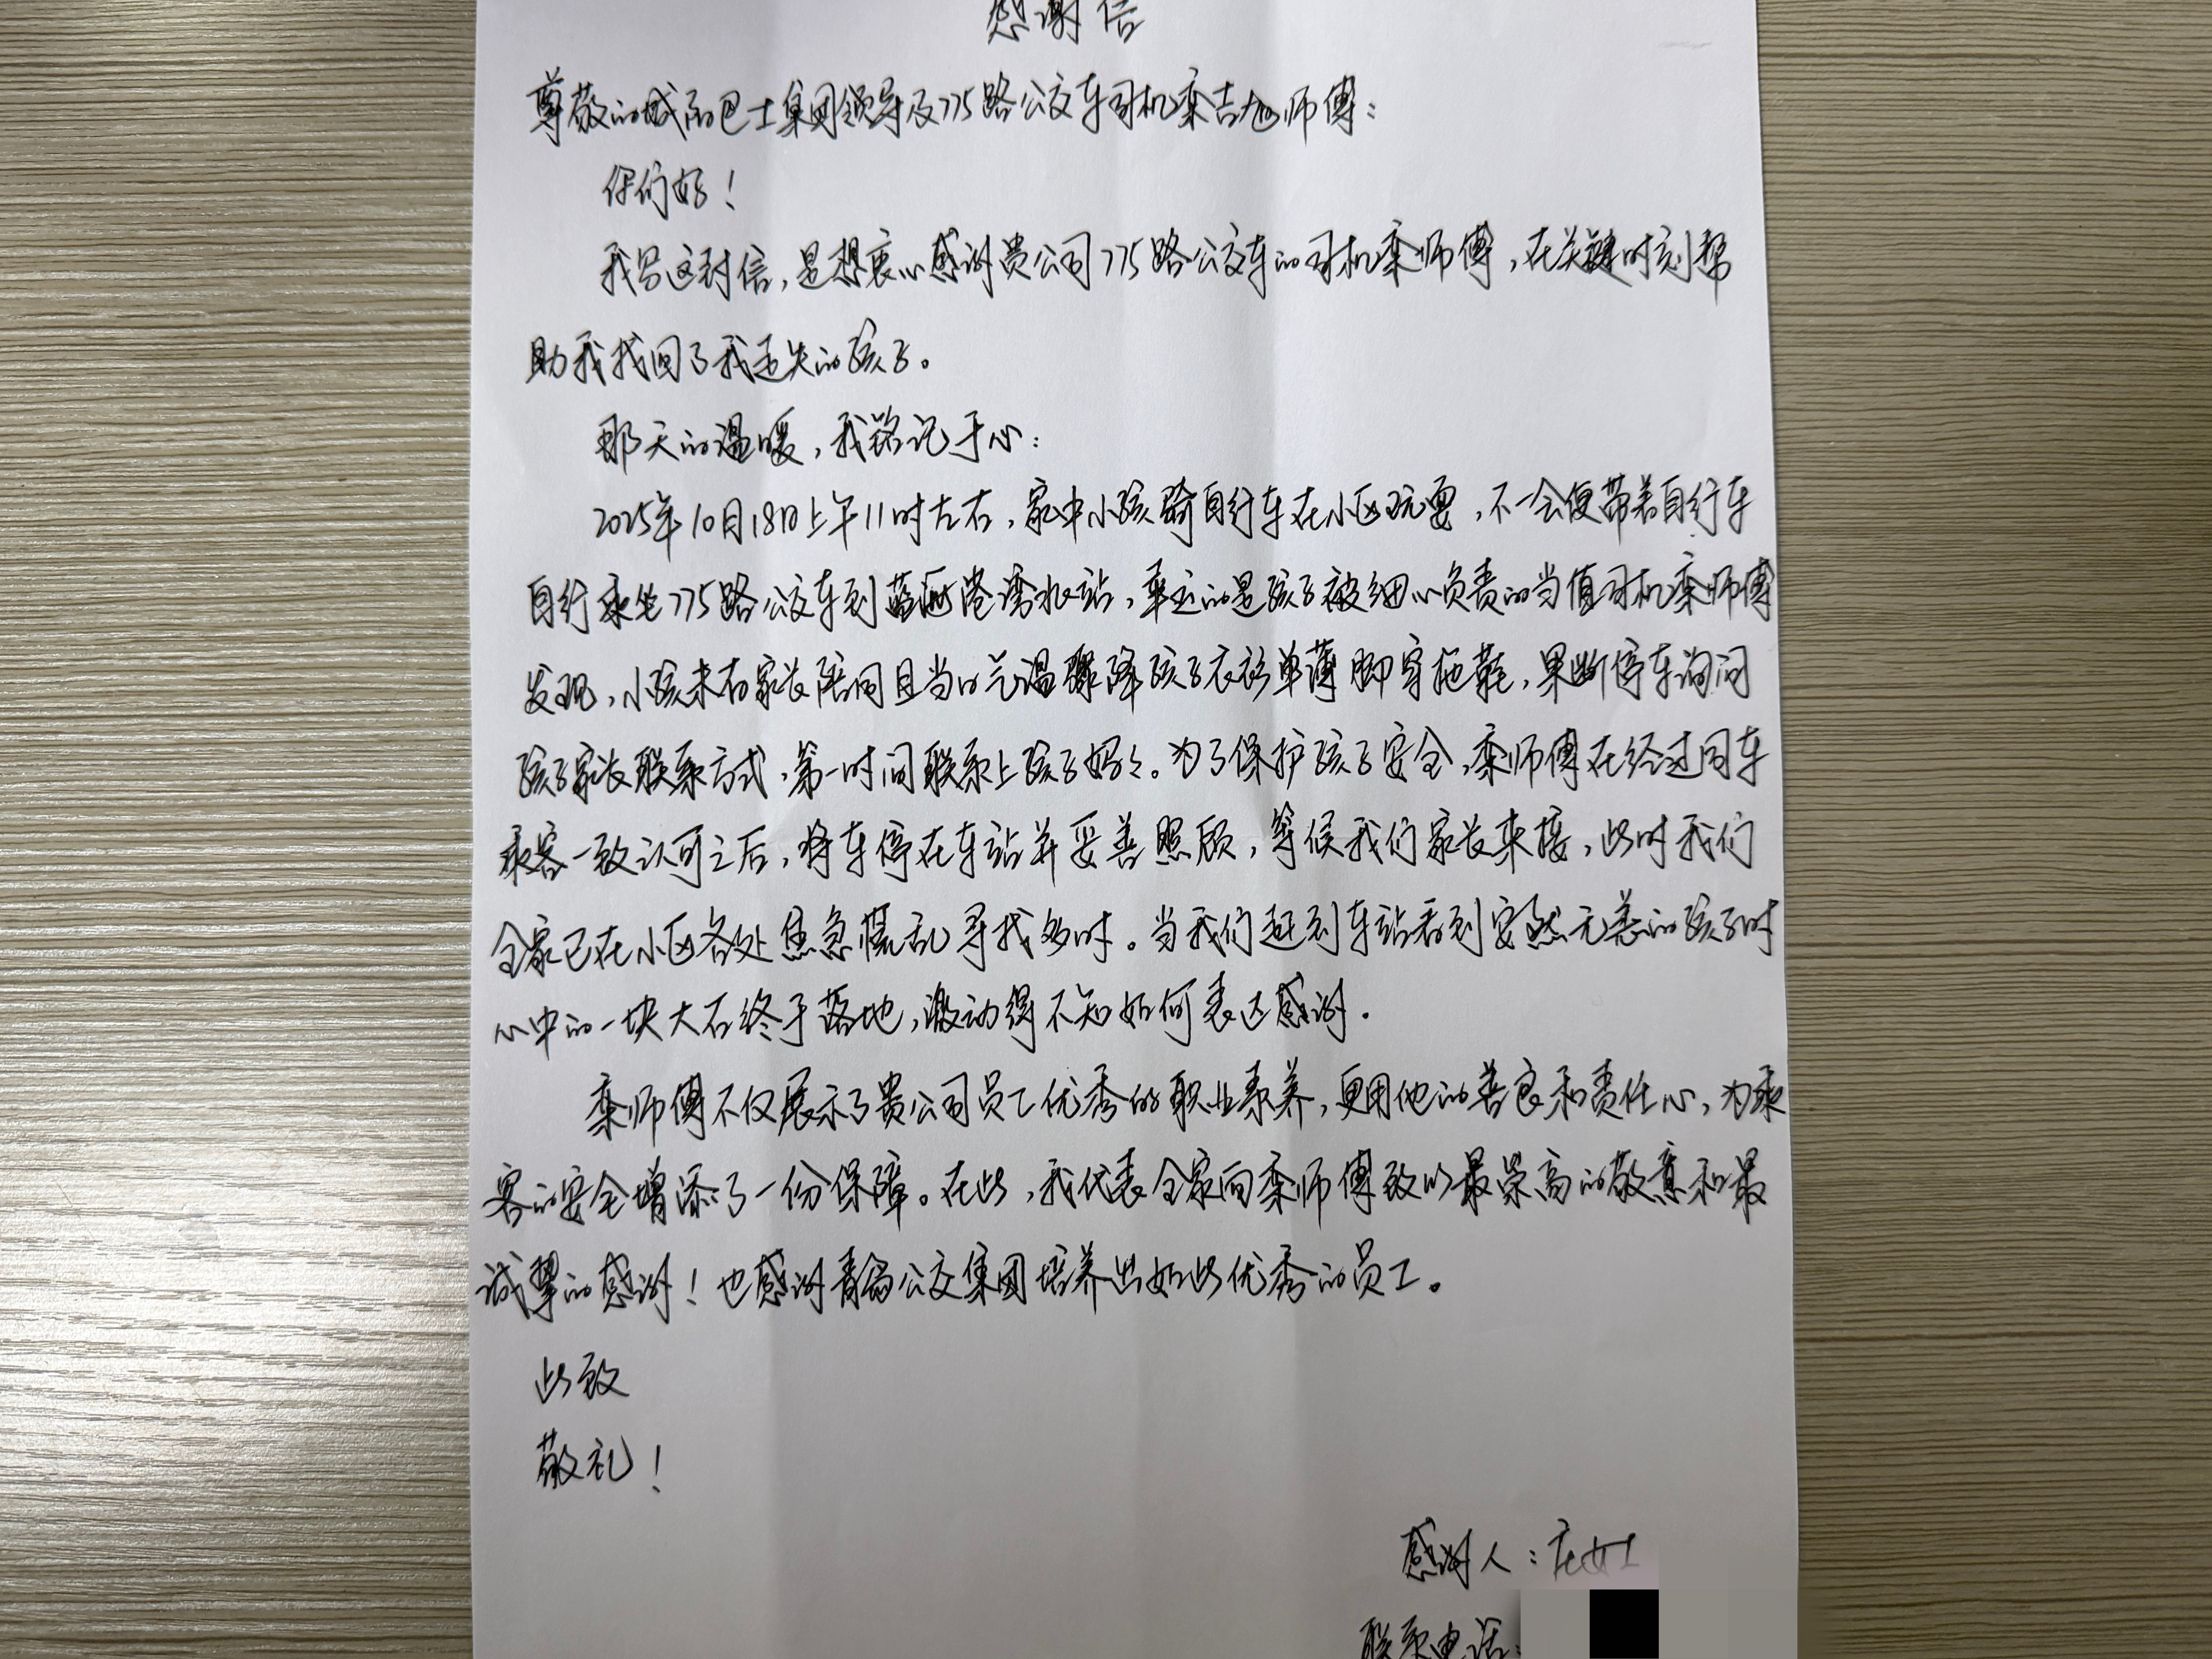 感谢信
尊敬的城市巴士集团领导及775路公交车司机栾吉旭师傅：
你们好！
我写这封信，是想衷心感谢贵公司775路公交车的司机栾师傅，在关键时刻帮
助我找回了我丢失的孩子。
那天的温暖，我铭记于心：
2025年10月18日上午11时左右，家中小孩骑自行车在小区玩耍，不一会便带着自行车
自行乘坐775路公交车到蓝海港湾北站，幸运的是孩子被细心负责的当值司机栾师傅
发现，小孩未有家长陪同且当日气温骤降孩子衣衫单薄脚穿拖鞋，果断停车询问
孩子家长联系方式，第一时间联系上孩子妈妈。为了保护孩子安全，栾师傅在经过同车
乘客一致认可之后，将车停在车站并妥善照顾，等候我们家长来接，此时我们
全家已在小区各处焦急慌乱寻找多时。当我们赶到车站看到安然无恙的孩子时
心中的一块大石终于落地，激动得不知如何表达感谢.
栾师傅不仅展示了贵公司员工优秀的职业素养，更用他的善良和责任心，为乘
客的安全增添了一份保障。在此，我代表全家向栾师傅致以最崇高的敬意和最
诚挚的感谢！也感谢青岛公交集团培养出如此优秀的员工。
此致
敬礼！
感谢人：庄女士
联系电话：